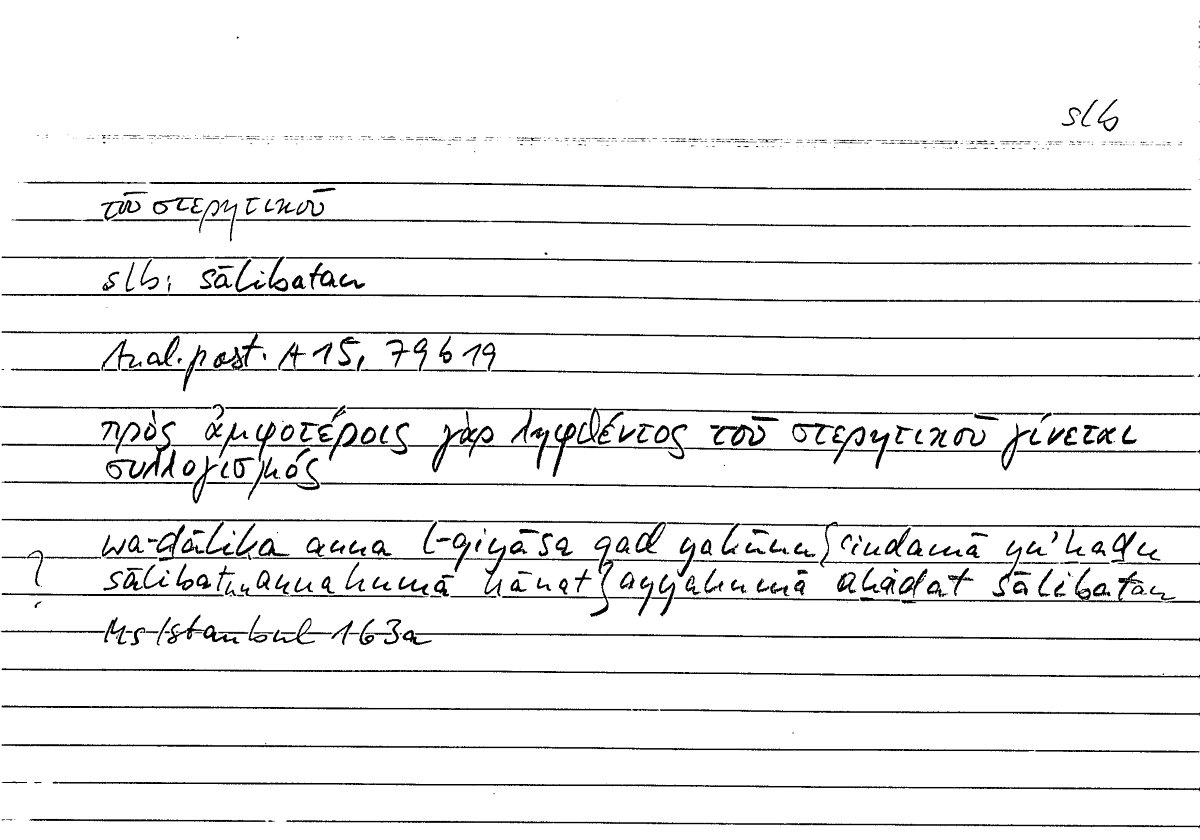 slb
τοῦ στερητικοῦ
slb: sālibatan
Anal. post. A 15, 79 b 19
πρὸς ἀμφοτέροις γὰρ ληφθέντος τοῦ στερητικοῦ γίνεται
συλλογισμός
wa-ḏālika anna l-qiyāsa qad yakūnu {ʿindamā yuʾḫaḏu
? sālibatun annahumā kānat} ayyahumā aḫaḏat sālibatan
Ms Istanbul 163a